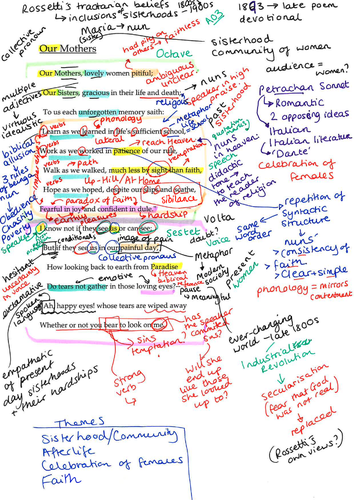 Rossetti's tractarian beliefs 1800s
→ inclusions sisterhoods → 1900s
1893 → late poem
devotional
AO3
collective
pronoun
Maria → nun
(sister)
had pity on
others →
faithless?
sisterhood
community of women
audience =
women?
Our Mothers
Octave
Our Mothers, lovely women pitiful;
Our Sisters, gracious in their life and death;
To us each unforgotten memory saith:
"Learn as we learned in life's sufficient school,
Work as we worked in patience of our rule,
Walk as we walked, much less by sight than faith,
Hope as we hoped, despite our slips and scathe,
Fearful in joy and confident in dule."
I know not if they see us or can see;
But if they see us in our painful day,
How looking back to earth from Paradise
Do tears not gather in those loving eyes?—
Ah, happy eyes! whose tears are wiped away
Whether or not you bear to look on me.
multiple
adjectives
virtuous
ambiguous
unclear
→ nuns
religious
metaphor
speaker's high
praise
past
speech
didactic
tone
to teach
the reader
of religion
biblical
allusion
3 rules
of being
a nun
Obedience
Charity
Poverty
verbs
phonology
lateral
reach Heaven
path
Up-Hill / At Home
paradox of faith
sibilance
hardship
earthly pleasures
Petrarchan Sonnet
→ Romantic
→ 2 opposing ideas
→ Italian
→ Italian literature
→ Dante
Celebration of
females
→ repetition of
syntactic
structure
↓
nuns'
consistency of
faith
→ clear + simple
phonology = mirrors
contentment
Volta
doubt?
Sestet
Voice
same
wonder
women
conditionals
image of pain
collective pronouns
metaphor
Modern
society
present
Heaven
biblical
emotive
pause
→ meaningful
hesitant
uncertainty
in voice
exclamative
spoken
language
empathetic
of present
day sisterhoods
+ their hardships
sins
temptation
strong
verb
has the
speaker
committed
sins?
Will she
end up
like those
she looked
up to?
ever-changing
world → late 1800s
Industrial
Revolution
secularisation
(fear that God
was not real)
→ replaced
(Rossetti's
own views?)
Themes
Sisterhood/Community
Afterlife
Celebration of females
Faith